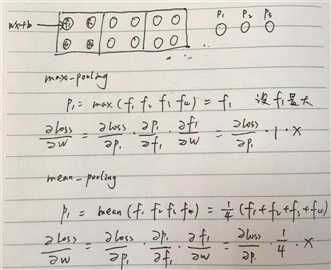 wx+b P₁ P₂ P₃
max-pooling
P₁ = max (f₁ f₂ f₃ f₄) = f₁ 设f₁最大
∂loss/∂w = ∂loss/∂P₁ · ∂P₁/∂f₁ · ∂f₁/∂w = ∂loss/∂P₁ · 1 · x
mean-pooling
P₁ = mean (f₁ f₂ f₃ f₄) = 1/4 (f₁+f₂+f₃+f₄)
∂loss/∂w = ∂loss/∂P₁ · ∂P₁/∂f₁ · ∂f₁/∂w = ∂loss/∂P₁ · 1/4 · x